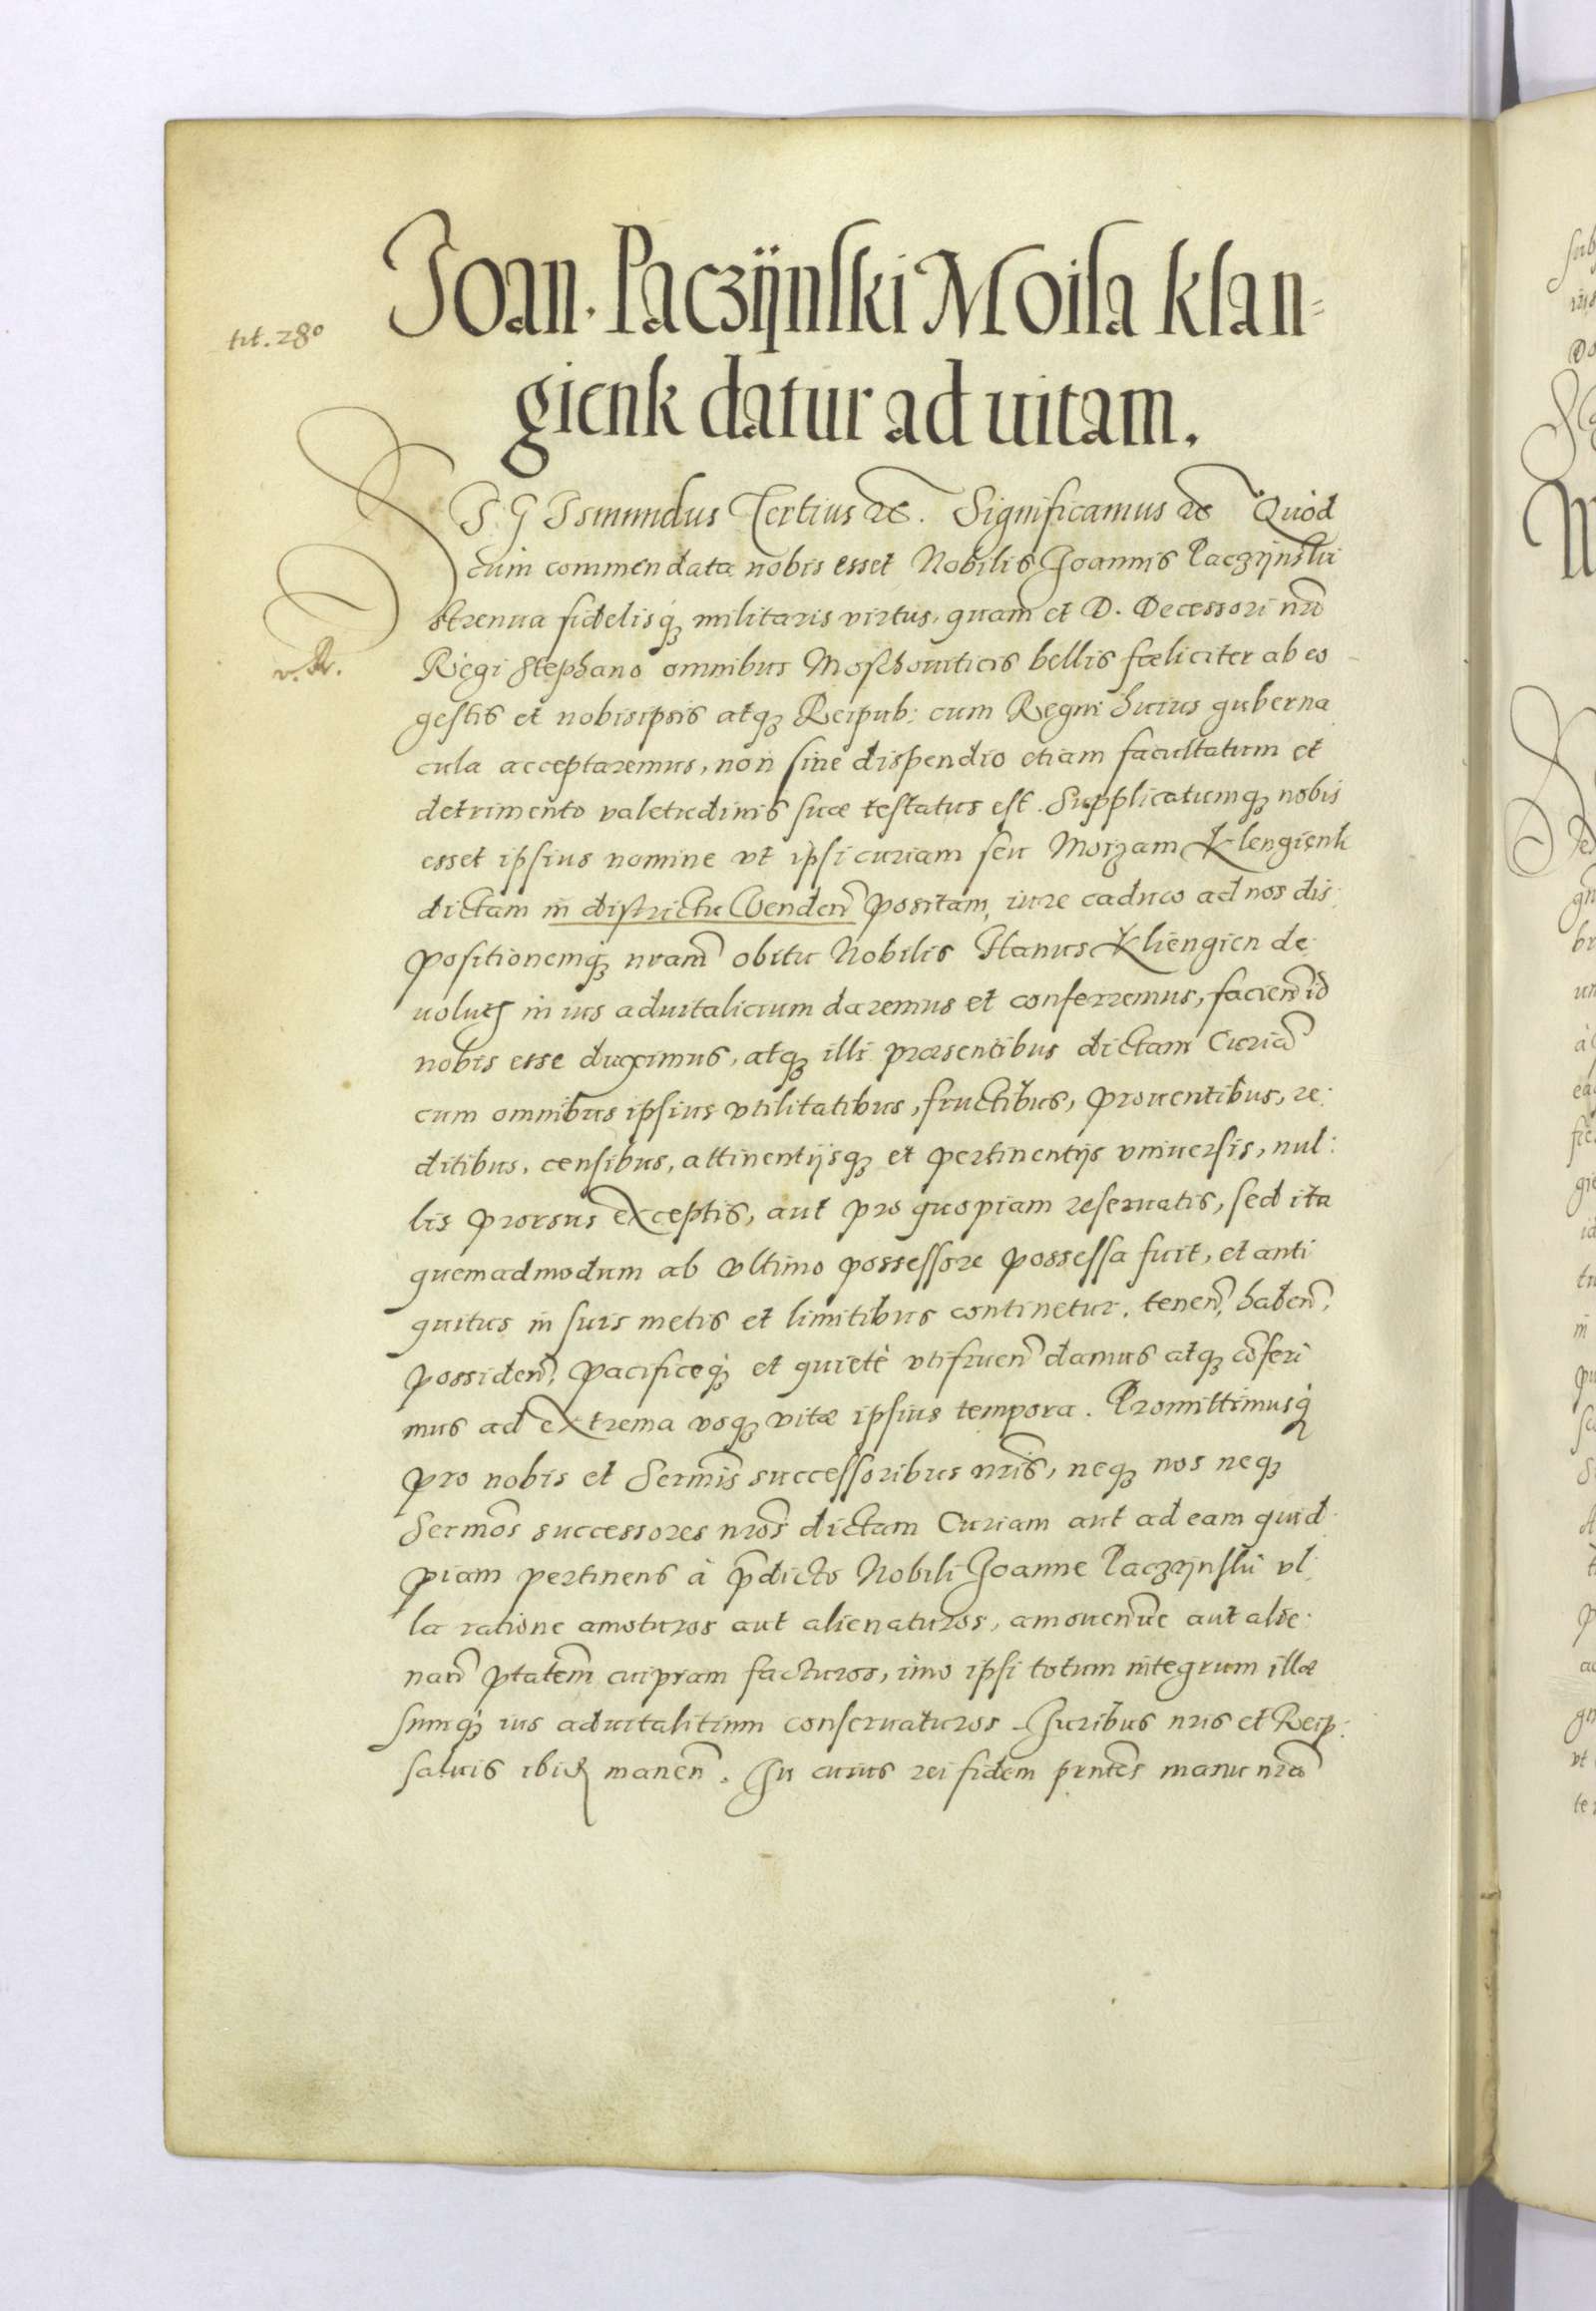 Joan. Paczijnski Moisa klan=
tit. 280
gienk datur ad uitam.
SIGIsmundus Tertius etc. Significamus etc Quòd
cum commendata nobis esset Nobilis Joannis Paczijnski
strenua fidelisq́ꝫ militaris virtus, quam et D. Decessori nr̃o
v. R.
Regi Stephano omnibus Moschouiticis bellis fœliciter ab eo
gestis et nobisipsis atqꝫ Reipub: cum Regni huius guberna
cula acceptaremus, non sine dispendio etiam facultatum et
detrimento valetudinis suæ testatus est. Supplicatumqꝫ nobis
esset ipsius nomine vt ipsi curiam seu Moizam Klengienk
dictam in districtu Wenden̄ positam, iure caduco ad nos dis:
positionemq́ꝫ nr̃am obitu Nobilis Hanus Kliengien de:
uolutꝫ in ius aduitalicium daremus et conferremus, facien̄ id
nobis esse duximus, atqꝫ illi præsentibus dictam Curiā
cum omnibus ipsius vtilitatibus, fructibus, prouentibus, re:
ditibus, censibus, attinentijsqꝫ et pertinentijs vniuersis, nul:
lis prorsus exceptis, aut pro quopiam reseruatis, sed ita
quemadmodum ab vltimo possessore possessa fuit, et anti
quitus in suis metis et limitibus continetur. tenen̄, haben̄,
possiden̄, pacificeq́ꝫ et quietè vtifruen̄ damus atqꝫ cōferi
mus ad extrema vsqꝫ vitæ ipsius tempora. Promittimusq́
pro nobis et Serm̄is successoribus nr̃is, neqꝫ nos neqꝫ
Serm̄os successores nr̃os dictam Curiam aut ad eam quid:
piam pertinens à p̄dicto Nobili Joanne Paczijnski vl:
la ratione amoturos aut alienaturos, amouen̄ue aut alie:
nan̄ p̄tatem cuipiam facturos, imo ipsi totum integrum illæ
sumq́ꝫ ius aduitalitium conseruaturos. Juribus nr̃is et Reip:
saluis ibidꝫ manen̄. In cuius rei fidem pr̃ntes manu nr̃a